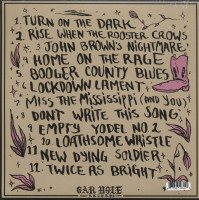 1 TURN ON THE DARK
2 RISE WHEN THE ROOSTER CROWS
3 JOHN BROWN'S NIGHTMARE
4 HOME ON THE RAGE
5 BOOGER COUNTY BLUES
6 LOCKDOWN LAMENT
7 MISS THE MISSISSIPPI (AND YOU)
8 DON'T WRITE THIS SONG
9 EMPTY YODEL NO 2
10 LOATHSOME WHISTLE
11 NEW DYING SOLDIER
12 TWICE AS BRIGHT
GAR HOLE